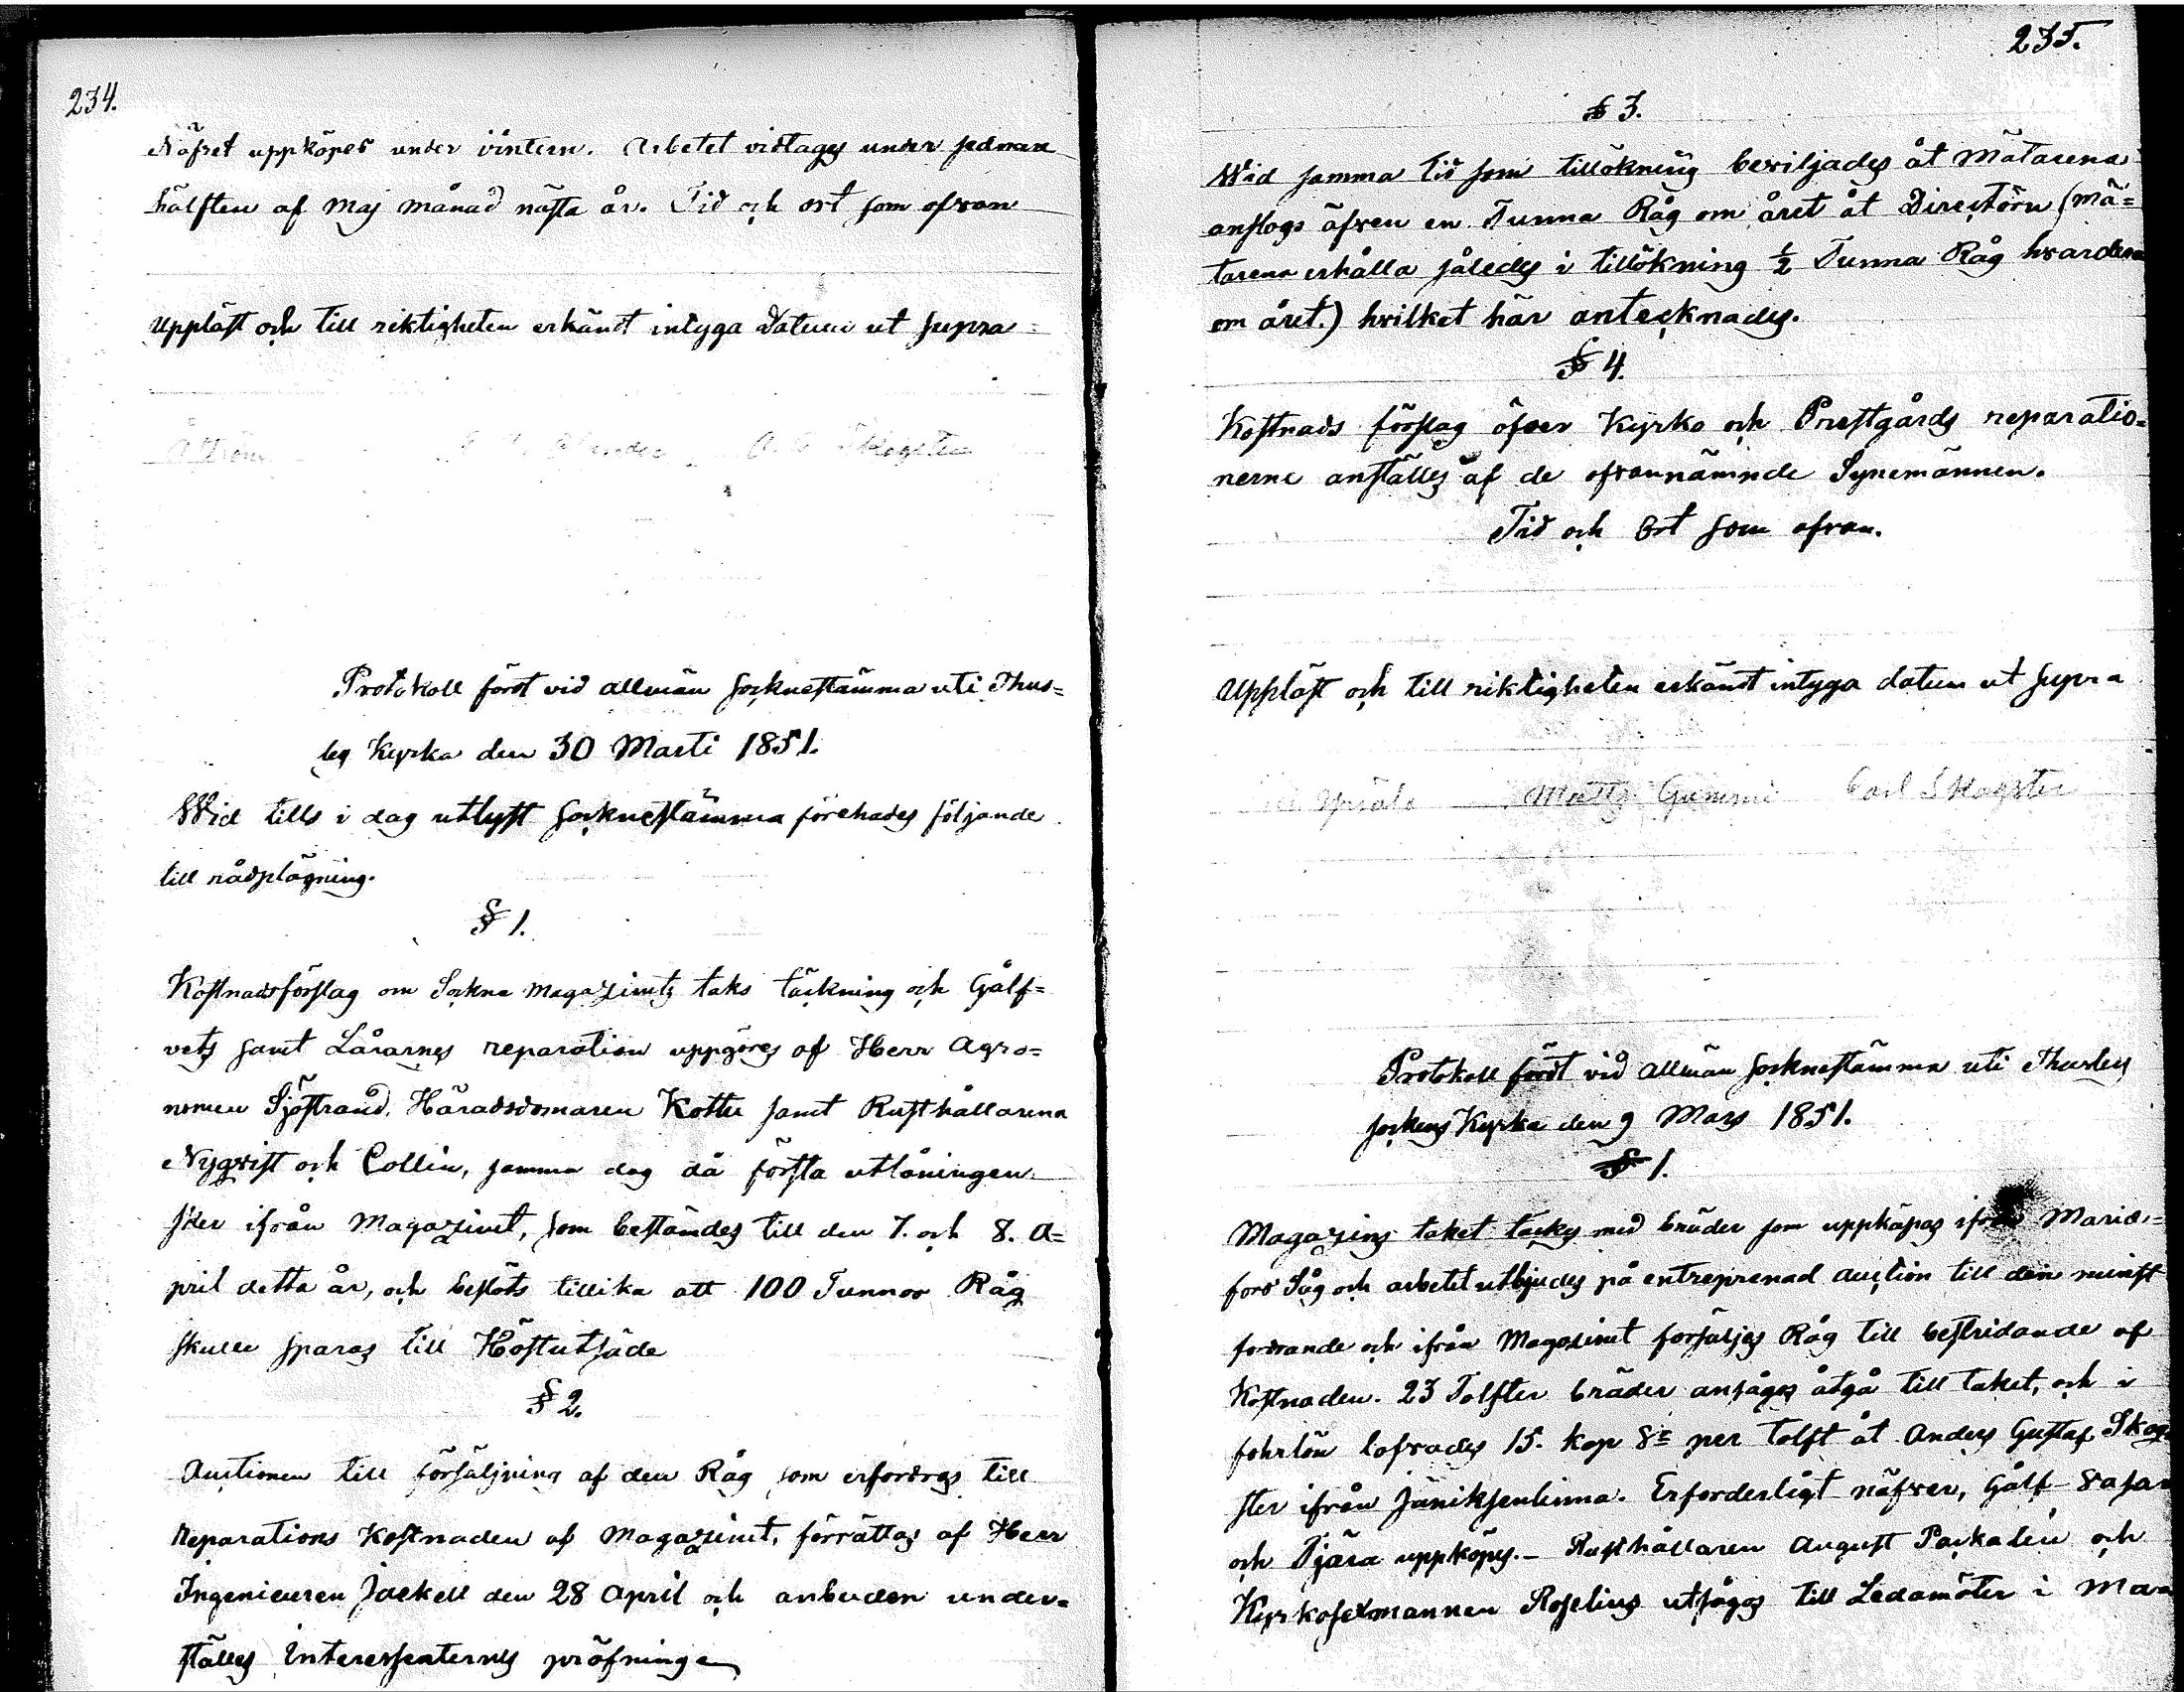 234.
Näfret uppköpes under vintern. Arbetet vidtages under sednare
hälften af Maj månad nästa år. Tid och ort som ofvan
Uppläst och till riktigheten erkändt intyga Datum ut supra
Skogster
Protokoll fördt vid allmän socknestämma uti Thus=
by Kyrka den 30 Marti 1851.
Wid tills i dag utlyst socknestämma förehades följande
till rådplägning.
§ 1.
Kostnadsförslag om Sockne Magazinets taks täckning och Gålf=
vets samt Lårarnes reparation uppgöres af Herr Agro=
nomen Sjöstrand, Häradsdomaren Kotte samt Rusthållarena
Nyqvist och Collin, samma dag då första utlåningen
sker ifrån Magazinet, som bestämdes till den 7. och 8. A=
pril detta år, och beslöts tillika att 100 Tunnor Råg
skulle sparas till Höstutsäde
§ 2.
Auctionen till försäljning af den Råg som erfordras till
Reparations Kostnaden af Magazinet, förrättas af Herr
Ingenieuren Jackell den 28 April och anbuden under=
ställes Interessenternes pröfningen
235.
§ 3.
Wid samma tid som tillökning beviljades åt Mätarena
anslogs äfven en Tunna Råg om året åt Directörn (Mä=
tarena erhålla således i tillökning ½ Tunna Råg hvardera
om året.) hvilket här antecknades.
§ 4.
Kostnads förslag öfver Kyrko och Prestgårds reparatio=
nerne anställes af de ofvannämnde Synemännen.
Tid och Ort som ofvan.
Uppläst och till riktigheten erkändt intyga datum ut supra
Matts Gammi Carl Skogster
Protokoll fördt vid allmän socknestämma uti Thusby
sockens Kyrka den 9 Mars 1851.
§ 1.
Magazins taket täckes med bräder som uppköpas ifrån Marie=
fors Såg och arbetet utbjudes på entreprenad auction till den minst
fordrande och ifrån Magazinet försäljes Råg till bestridande af
Kostnaden. 23 Tolfter bräder ansågos åtgå till taket, och i
fohrlön lofvades 15. kop Sr per tolft åt Anders Gustaf Skog=
ster ifrån Jäniksenlinna. Erforderligt näfver, Gålf vasar
och Tjära uppköpes. – Rusthållaren August Packalén och
Kyrkosexmannen Roselius utsågos till Ledamöter i Maga